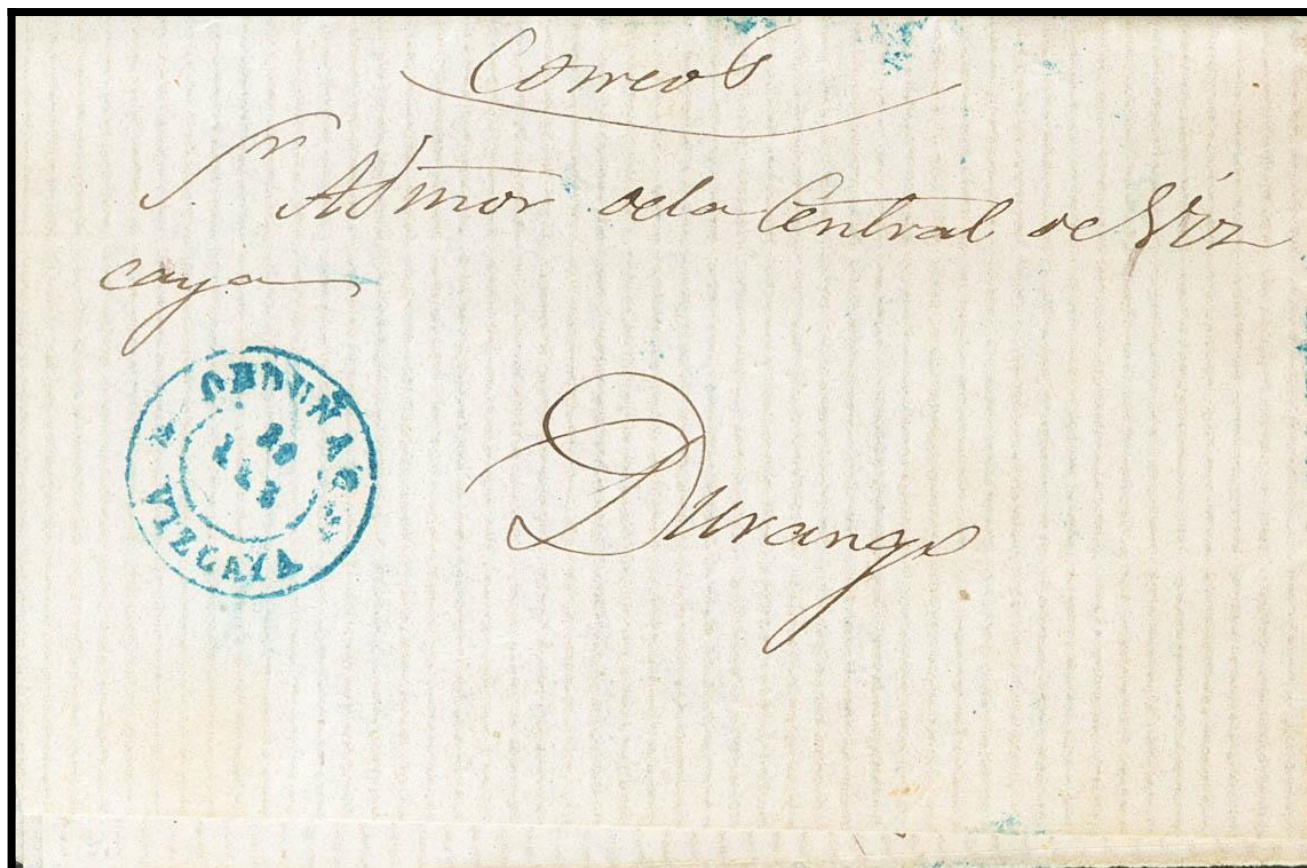 Correos
Sr Admor dela Central de Viz
caya
ORDUÑA
VIZCAYA
Durango